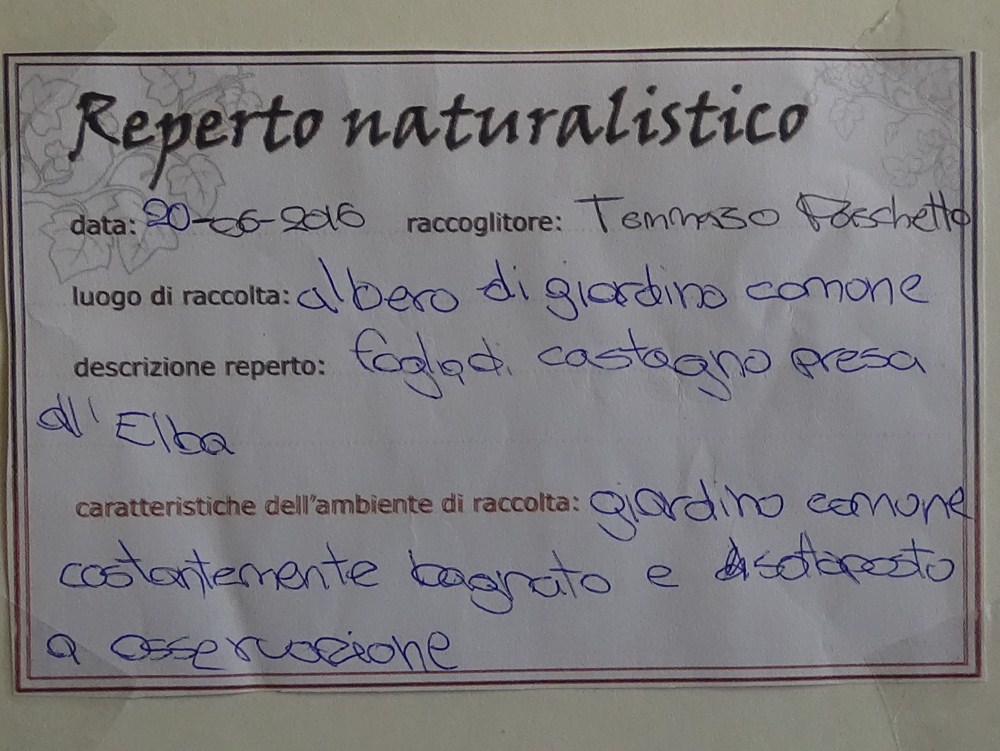 Reperto naturalistico
data: 20-06-2016 raccoglitore: Tommaso Foschetto
luogo di raccolta: albero di giardino comone
descrizione reperto: foglia di castagno presa
all' Elba
caratteristiche dell'ambiente di raccolta: giardino comone
costantemente bagnato e sottoposto
a osservazione